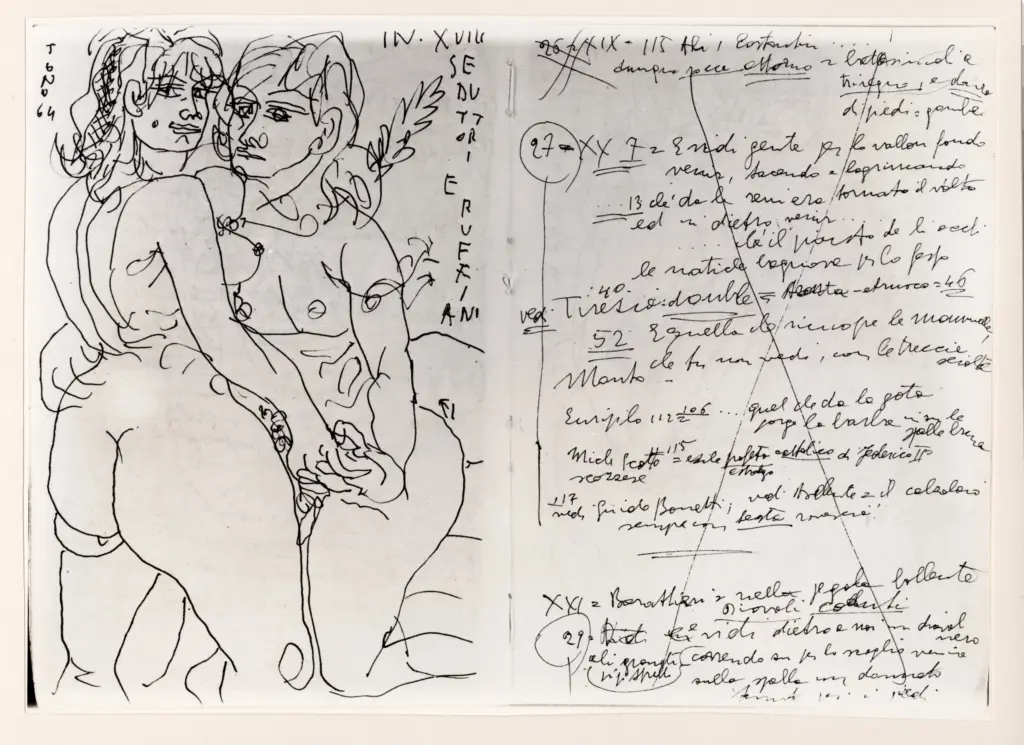 IN. XVIII
SEDUTTORI E RUFFIANI
TONO
64
26 = XIX - 115 Ahi, Costantin ...
dunque pece attorno =
di piedi = gambe
27 = XX 7 = E vidi gente per lo vallon fondo
venir, tacendo e lagrimando
... 13 ché da le reni era tornato il volto
ed in dietro venir ...
ché il pianto de li occhi
le natiche bagnava per lo fesso
:40.
ved. Tiresia: double = - etrusco = 46
52 E quella che ricuopre le mammelle,
che tu non vedi, con le treccie sciolte
Manto -
Euripilo 112 106 ... quel che da la gota
porge la barba in su le spalle brune
Michele Scotto 115 = di Federico II°
scozzese
117
vedi Guido Bonatti; vedi Asdente = il calzolaio
sempre con testa rovescia!
XXI = Barattieri = nella pegola bollente
Diavoli
29 - vidi dietro a noi un diavol nero
ali grandi correndo su per lo scoglio venire
sulla spalla un dannato